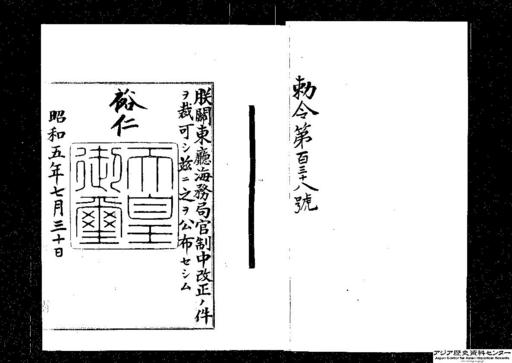 勅令第百三十八號
朕關東廳海務局官制中改正ノ件
ヲ裁可シ玆ニ之ヲ公布セシム
裕仁
天皇御璽
昭和五年七月三十日
アジア歴史資料センター
Japan Center for Asian Historical Records